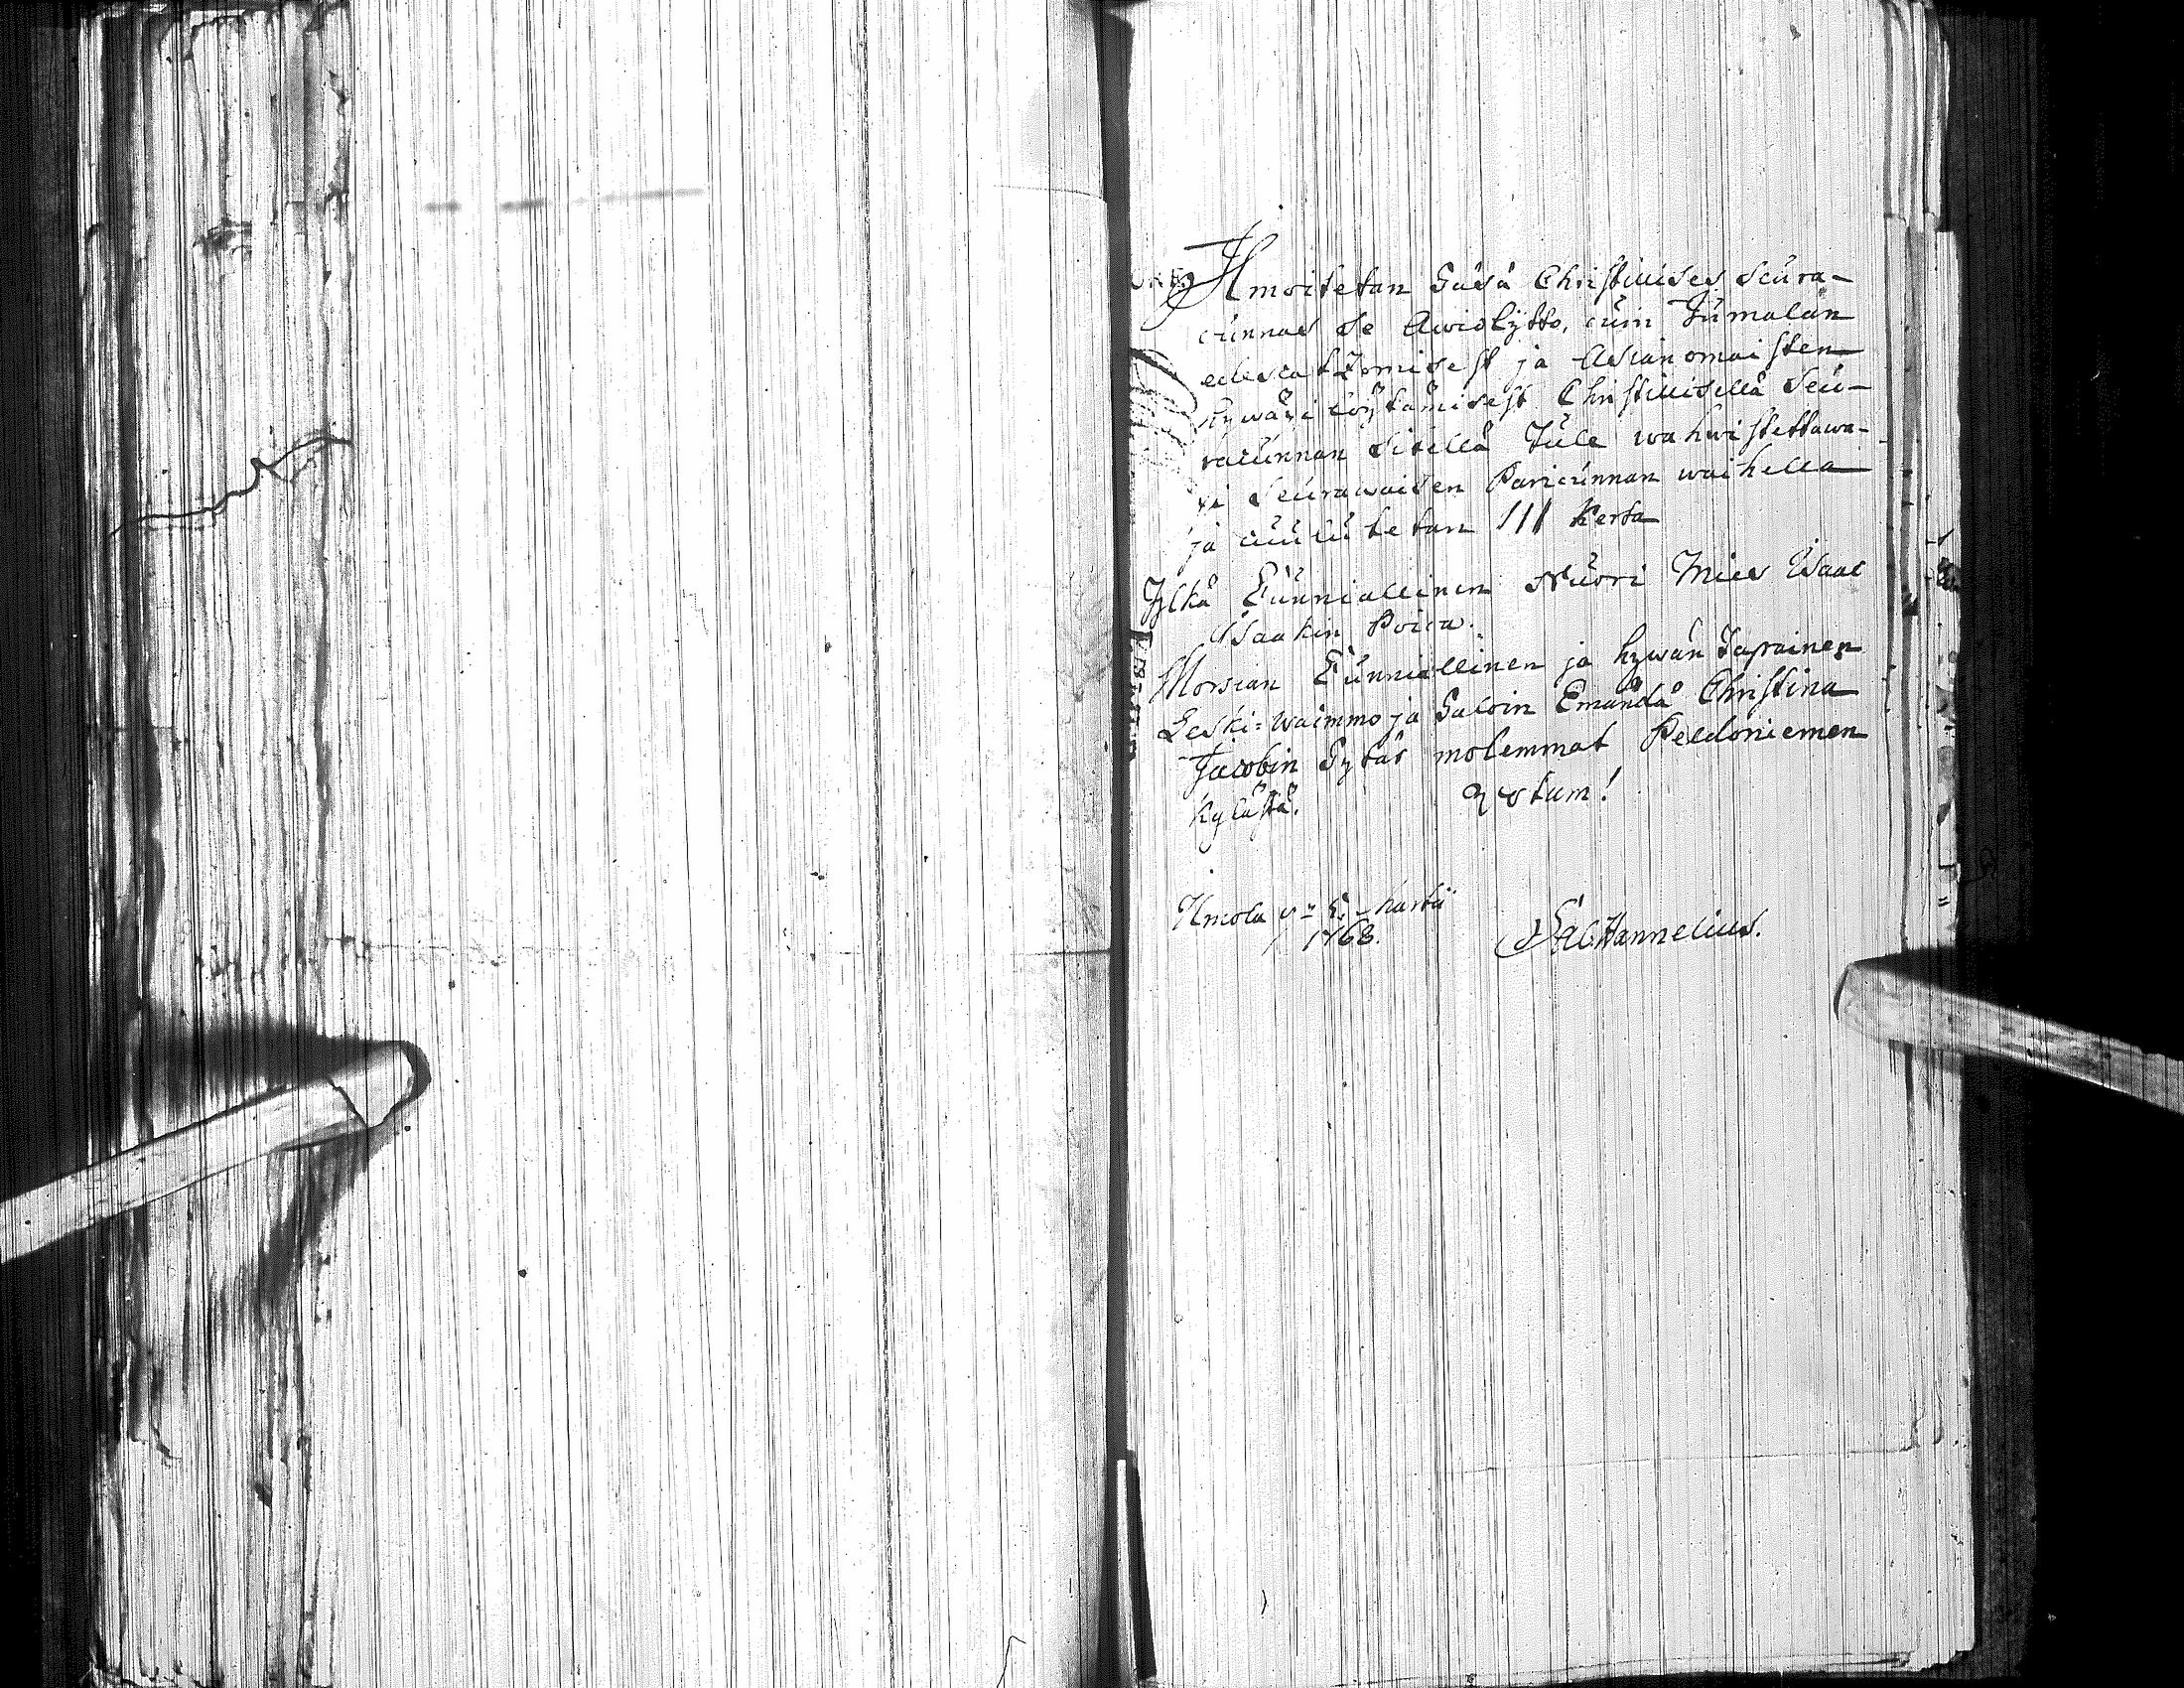 Ilmoitetan Täsä Christilises Seura-
cunnas se Awiokäytto, cuin Jumalan
edescatzomisest ja Asianomaisten
hywäxi löytämisest Christilisellä Seu-
racunnan Siteellä Tule wahwistettawa-
xi Seurawaisen Paricunnan waihella
ja cuulutetan III Kerta
Ylkä Cunniallinen Nuori Mies Isaac
Isaakin Poica.
Morsian Cunniallinen ja hywän Tapainen
Leski=Waimmo ja Taloin Emändä Christina
Jacobin Tytär molemmat Peldoniemen
Kylästä. Votum!
Ilmola Martii
1768. Hannelius.